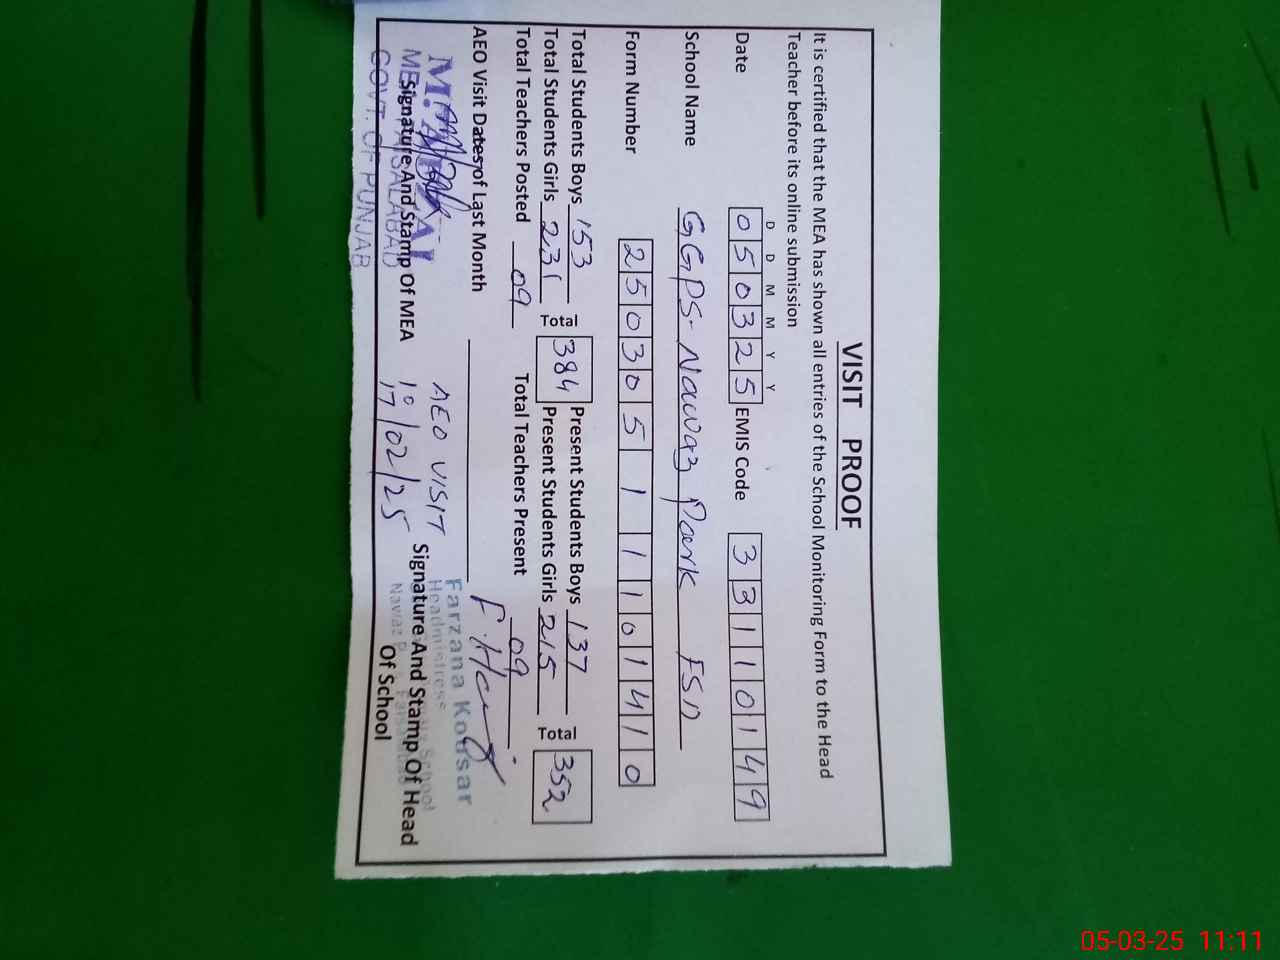 VISIT PROOF
It is certified that the MEA has shown all entries of the School Monitoring Form to the Head
Teacher before its online submission
D D M M Y Y
Date 050325 EMIS Code 33110149
School Name GGPS- Nawaz Park FSD
Form Number 25030511101410
Total Students Boys 153 Present Students Boys 137
Total Students Girls 231 Total 384 Present Students Girls 215 Total 352
Total Teachers Posted 09 Total Teachers Present 09
AEO Visit Dates of Last Month
AEO VISIT
10
17/02/25
Farzana Kousar
Headmistress
Signature And Stamp Of MEA
GOVT. OF PUNJAB
Signature And Stamp Of Head
Of School
05-03-25 11:11